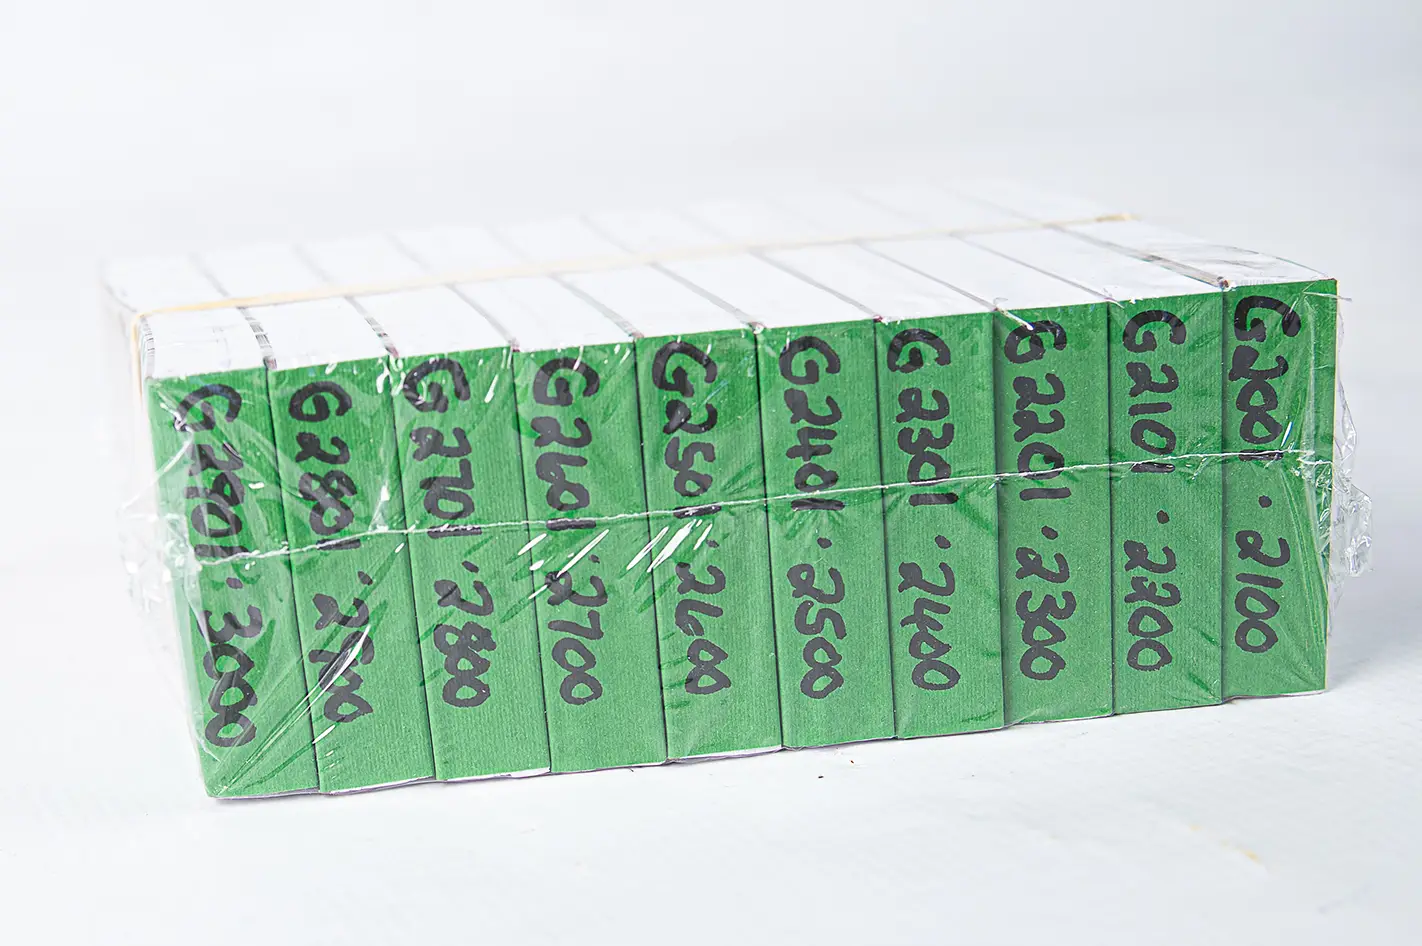 G2901·3000
G2801·2900
G2701·2800
G2601·2700
G2501·2600
G2401·2500
G2301·2400
G2201·2300
G2101·2200
G2001·2100